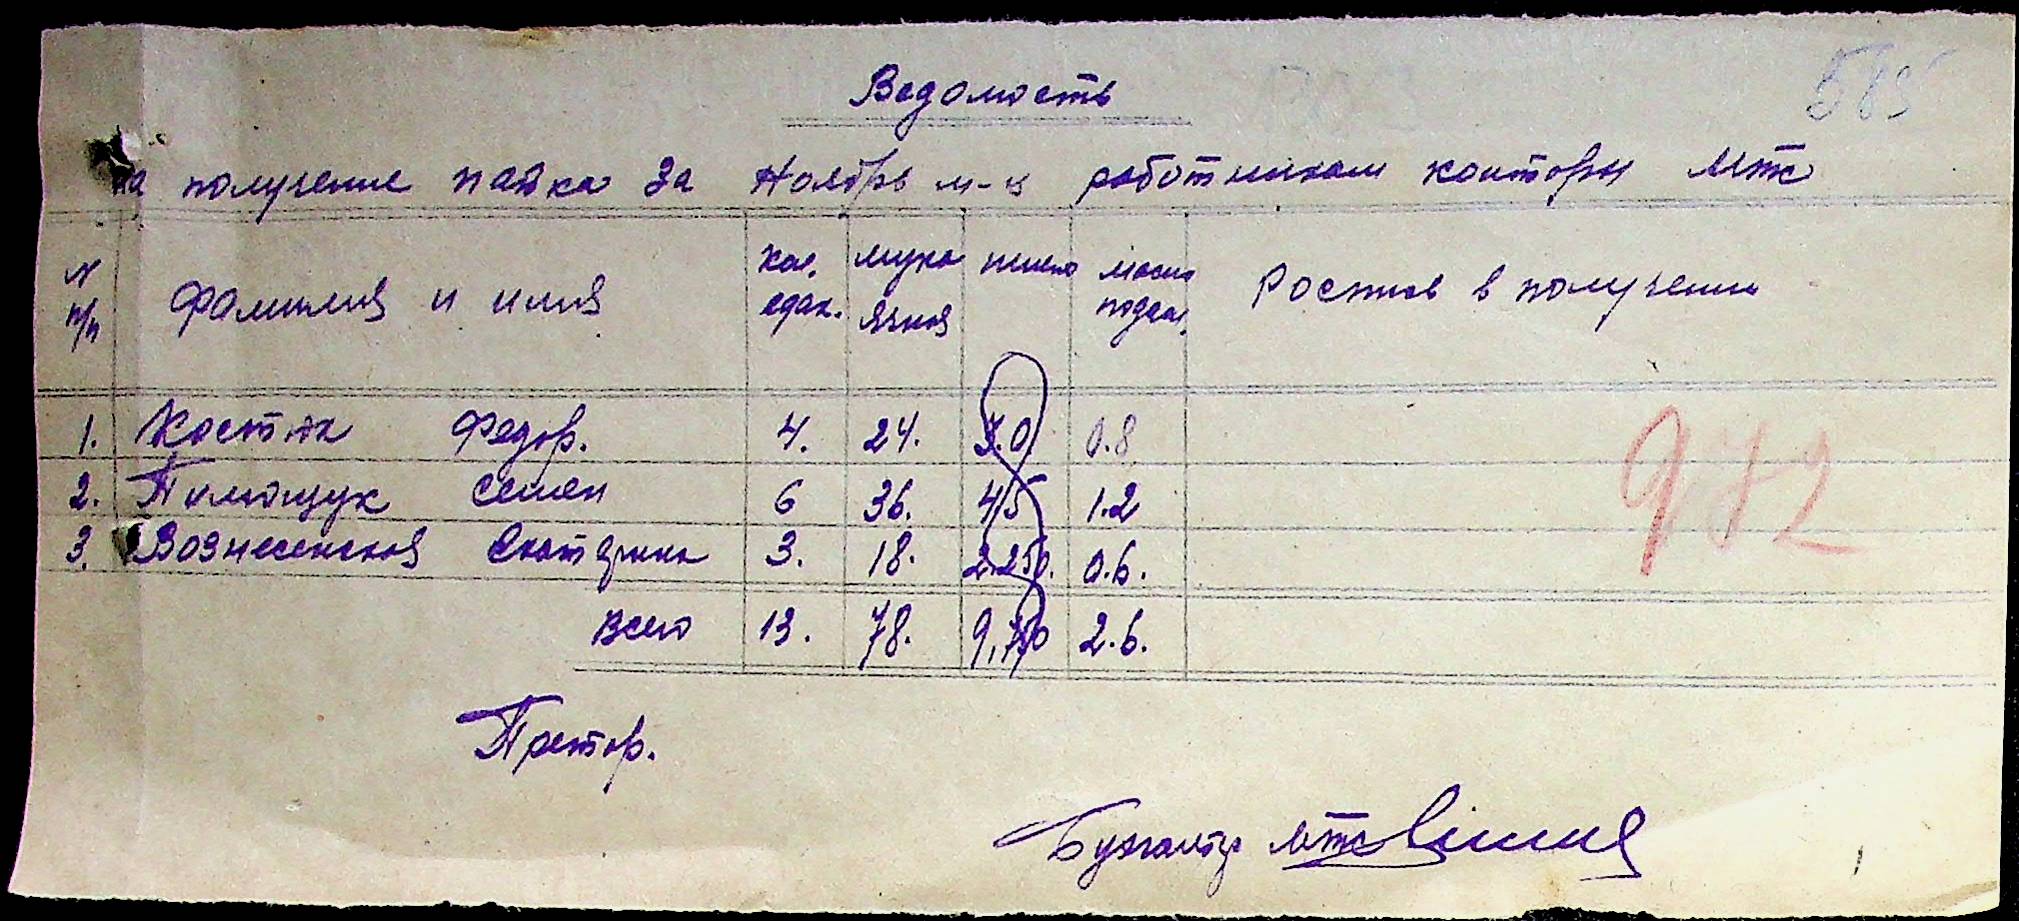 585
Ведомость
на получение пайка за Ноябрь м-ц работникам конторы МТС
N п/п Фамилия и имя Кол. едак. мука ячная пшено масло подсол. Роспись в получении
1. Костюк Федор. 4. 24. 3.0 0.8
2. Тимощук Семен 6 36. 4,5 1.2
3. Вознесенская Екатерина 3. 18. 2.250. 0.6.
Всего 13. 78. 9,750 2.6.
972
Претор.
Бухгалтер МТС